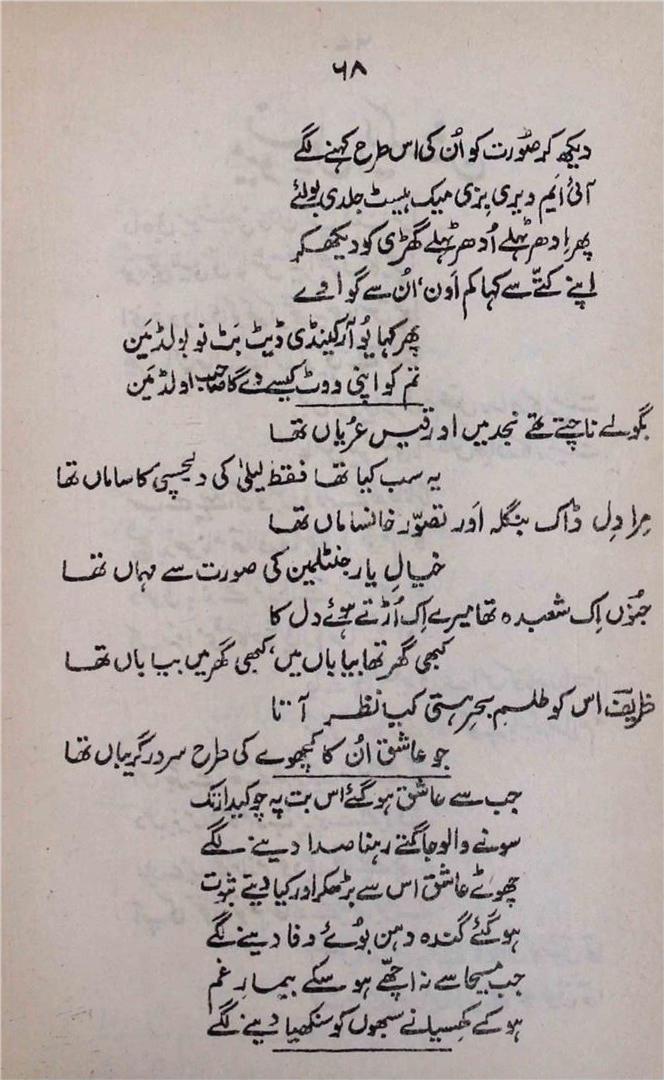 ۶۸
دیکھ کر صُورت کو اُن کی اس طرح کہنے لگے
آئی ایم ویری بِزی میک ہیسٹ جلدی بولئے
پھر اِدھر ٹہلے اُدھر ٹہلے گھڑی کو دیکھ کر
اپنے کتّے سے کہا کم اَون، اُن سے گو اوے
پھر کہا یُو آر کینڈی ڈیٹ بَٹ نو بولڈ مَین
تم کو اپنی ووٹ کیسے دے گا صاحب اولڈ مَین
بگولے ناچتے تھے نجد میں اور قیس عُریاں تھا
یہ سب کیا تھا فقط لیلیٰ کی دلچسپی کا ساماں تھا
مِرا دِل ڈاک بنگلہ اَور تصوّر خانساماں تھا
خیالِ یار جنٹلمین کی صورت سے مہماں تھا
جنُوں اِک شعبدہ تھا میرے اِک اُڑتے ہوئے دل کا
کبھی گھر تھا بیاباں میں، کبھی گھر میں بیاباں تھا
ظریفؔ اس کو طلسمِ بحرِ ہستی کب نظر آتا
جو عاشق اُن کا کچھوے کی طرح سر در گریباں تھا
جب سے عاشق ہو گئے اس بت پہ چوکیدار تک
سونے والو جاگتے رہنا صدا دینے لگے
جھوٹے عاشق اس سے بڑھکر اور کیا دیتے ثبوت
ہو گئے گندہ دہن بُوئے وفا دینے لگے
جب مسیحا سے نہ اچھّے ہو سکے بیمارِ غم
ہو کے کھسیانے سبھوں کو سنکھیا دینے لگے